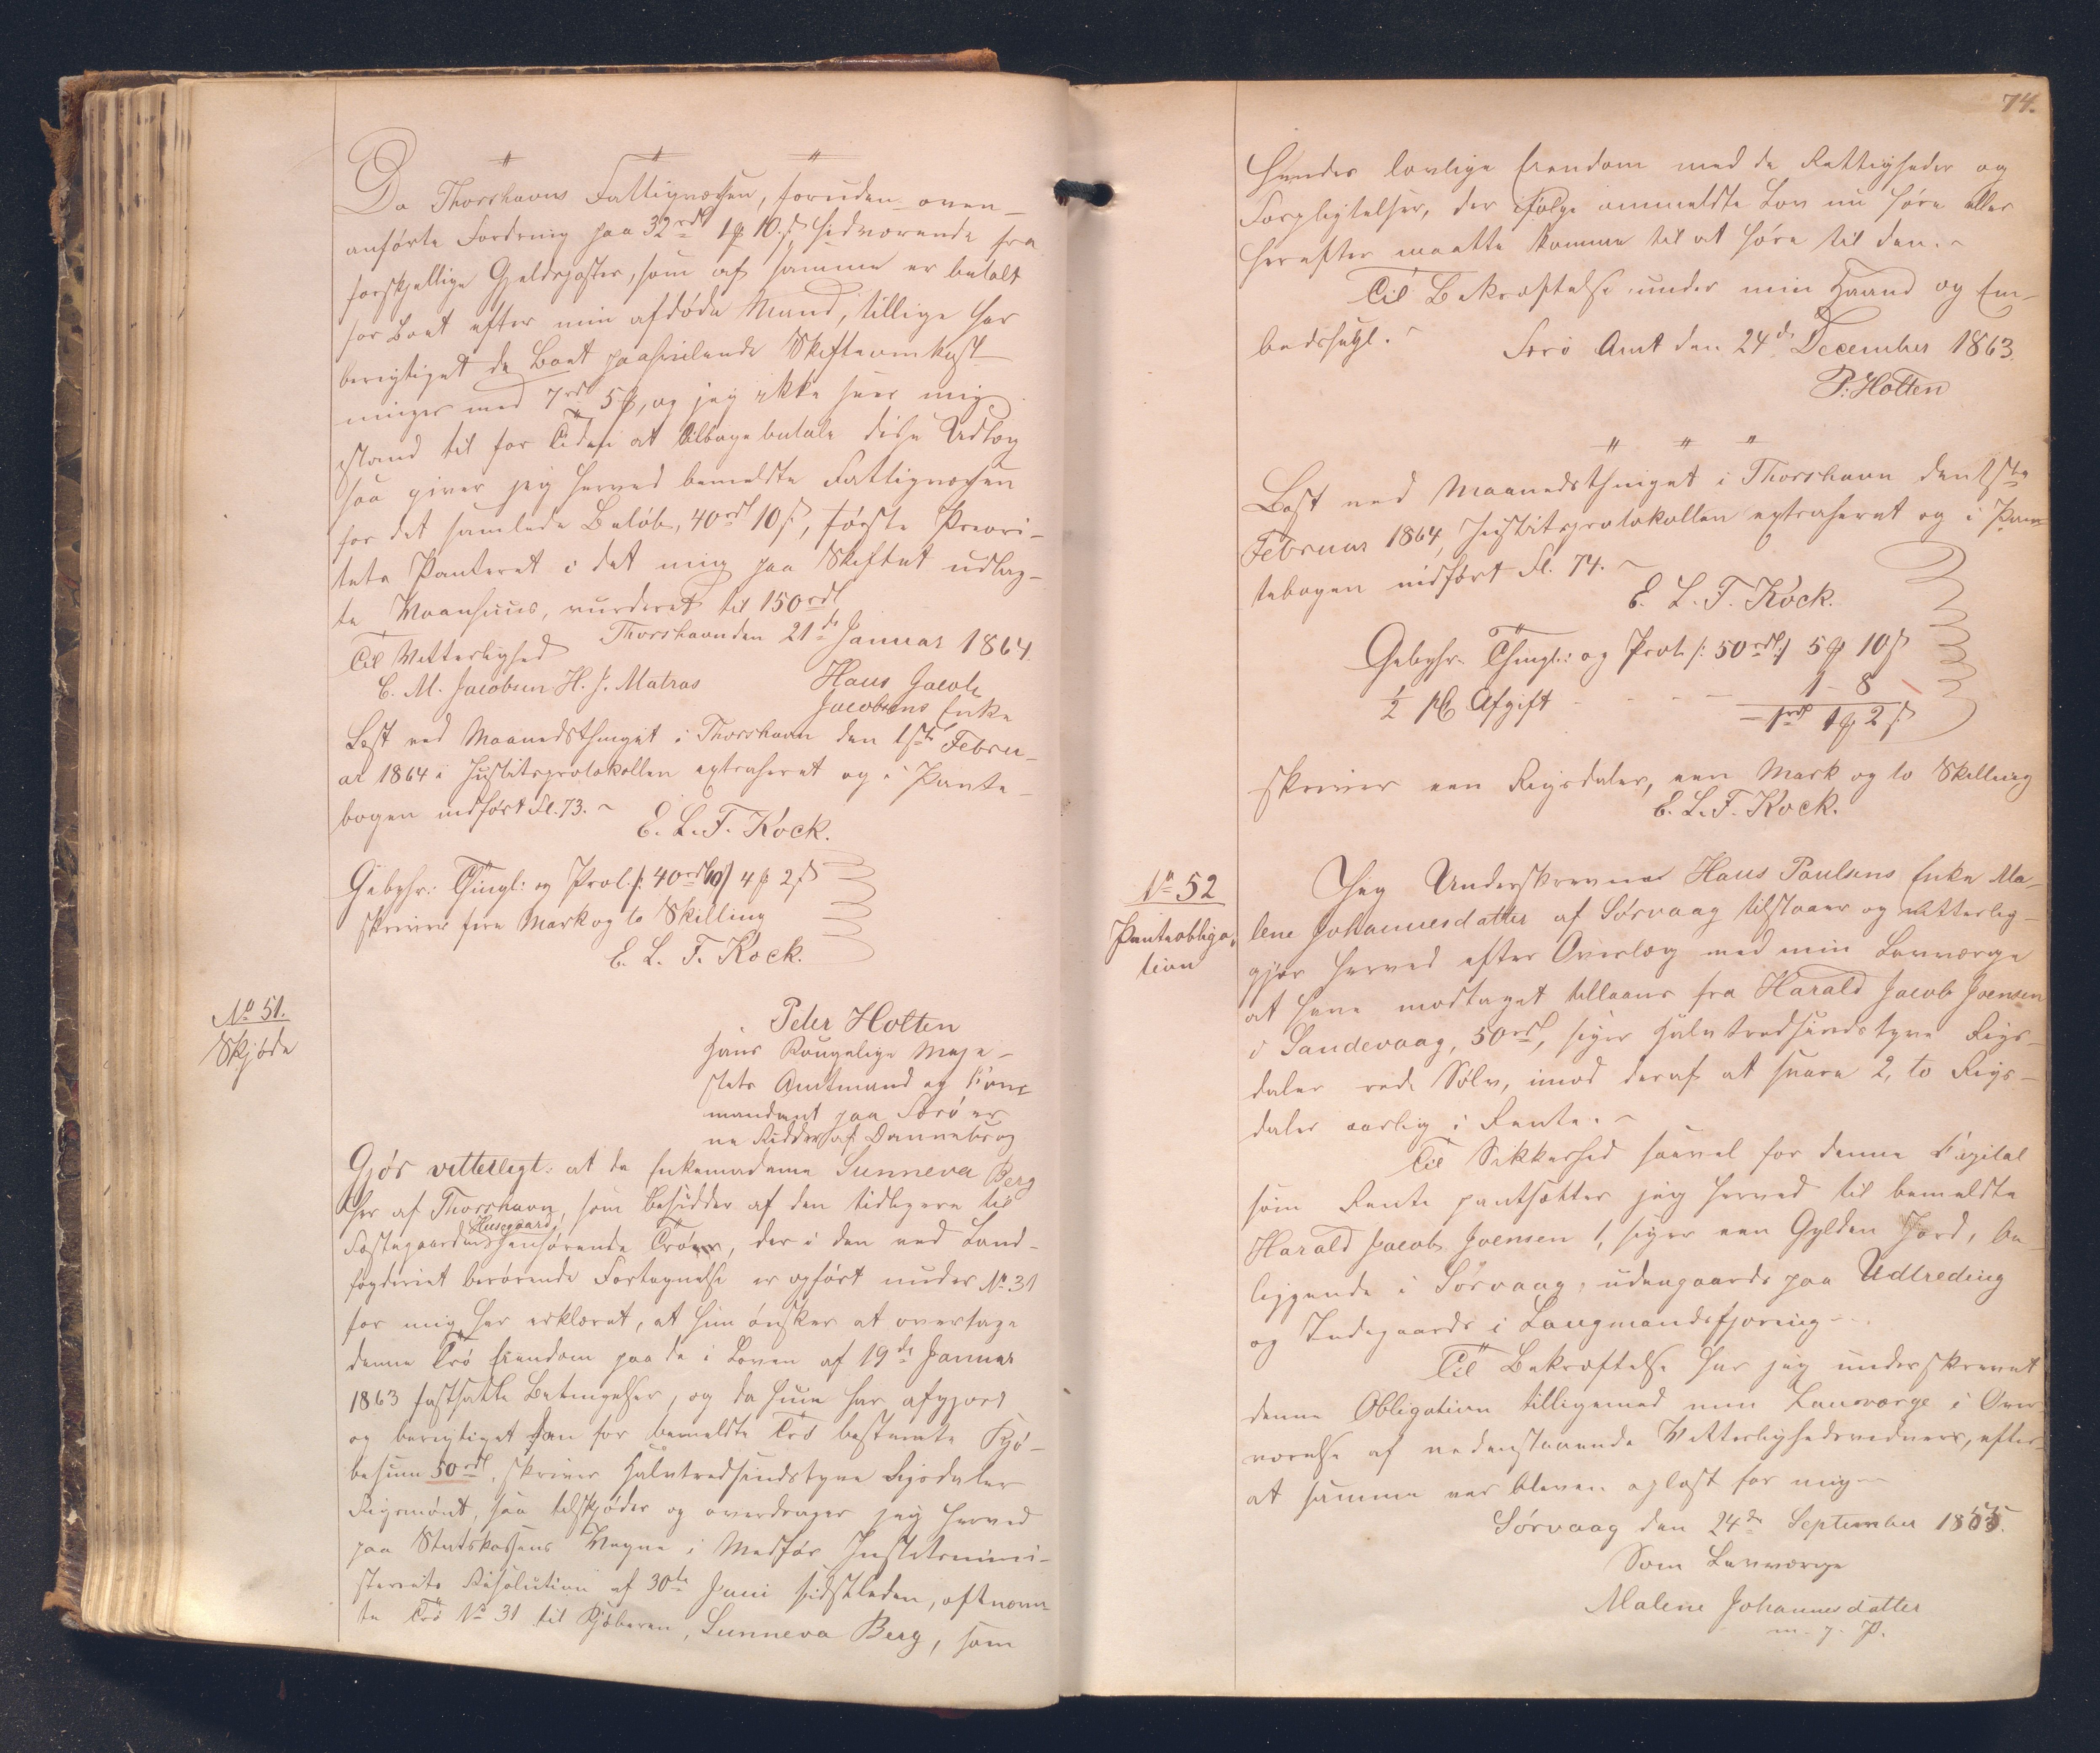 Da Thorshavns Fattigvæsen, foruden oven-
anførte Fordring paa 32rdl 1 mk 10 s, hidrørende fra
forskjellige Gjeldsposter, som af samme er betalt
for Boet efter min afdøde Mand, tillige har
berigtiget de Boet paahvilende Skifteomkost-
ninger med 7rd 5 mk, og jeg ikke seer mig
istand til for Tiden at tilbagebetale disse Udlæg
saa giver jeg herved bemeldte Fattigvæsen
for det samlede Beløb, 40rd 10 s, første Priori-
tets Panteret i det mig paa Skiftet udlag-
te Vaanhuus, vurderet til 150rdl
Thorshavn den 21de Januar 1864.
Til Vitterlighed
C. M. Jacobsen H. J. Matras
Hans Jacob
Jacobsens Enke
Læst ved Maanedsthinget i Thorshavn den 1ste Febru-
ar 1864 i Justitsprotokollen extraheret og i Pante-
bogen indført Fl. 73.
E. L. F. Kock.
Gebyhr: Thingl: og Prot. /: 40rdl 10 s/ 4 mk 2 s
skriver fire Mark og to Skilling
E. L. F. Kock.
No 51.
Skjøde
Peter Holten
Hans Kongelige Maje-
stæts Amtmand og Kom-
mandant paa Færøer-
ne Ridder af Dannebrog
Gjør vitterligt: at da Enkemadame Sunneva Berg
her af Thorshavn, som Besidder af den tidligere til
Fæstegaarden Husegaard henhørende Trøer, der i den ved Land-
fogderiet berørende Fortegnelse er opført under No 31
for mig har erklæret, at hun ønsker at overtage
denne Trø Eiendom paa de i Loven af 19de Januar
1863 fastsatte Betingelser, og da hun har afgjort
og berigtiget den for bemeldte Trø bestemte Kjø-
besum 50rd, skriver Halvtredsindstyve Rigsdaler
Rigsmønt, saa tilskjøder og overdrager jeg herved
paa Statskassens Vegne i Medfør Justitsmini-
steriets Resolution af 30te Juni sidstleden, oftnævn-
te Trø No 31 til Kjøberen, Sunneva Berg, som
74.
Hendes lovlige Eiendom med de Rettigheder og
Forpligtelser, der ifølge anmeldte Lov nu høre eller
herefter maatte komme til at høre til den.
Til Bekræftelse under min Haand og Em-
bedssegl.
Færø Amt den 24de December 1863.
P. Holten
Læst ved Maanedsthinget i Thorshavn den 1ste
Februar 1864, Justitsprotokollen extraheret og i Pan-
tebogen indført Fl. 74.
E. L. F. Kock.
Gebyhr. Thingl: og Prot /: 50rdl:/ 5 mk 10 s
½ pCt Afgift - - - 1 - 8
- 1rd 1 mk 2 s
skriver een Rigsdaler, een Mark og to Skilling
E. L. F. Kock.
No 52
Panteobliga-
tion
Jeg Underskrevne Hans Poulsens Enke Ma-
lene Johannesdatter af Sørvaag tilstaaer og vitterlig-
gjør herved efter Overlæg med min Lavværge
at have modtaget tillaans fra Harald Jacob Joensen
i Sandevaag, 50rd, siger halvtredsindstyve Rigs-
daler rede Sølv, imod deraf at svare 2, to Rigs-
daler aarlig i Rente.
Til Sikkerhed saavel for denne Kapital
som Rente pantsætter jeg herved til bemeldte
Harald Jacob Joensen 1, siger een Gylden Jord, be-
liggende i Sørvaag, udengaards paa Udtreding
og Indegaards i Laugmandsfjoring
Til Bekræftelse har jeg underskrevet
denne Obligation tilligemed min Lauværge i Over-
værelse af nedenstaaende Vitterlighedsvidner, efter-
at samme var bleven oplæst for mig
Sørvaag den 24de September 1855.
Som Lavværge
Malene Johannesdatter
m. f. P.